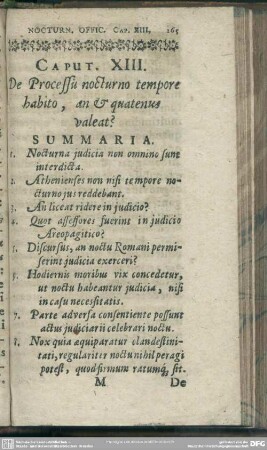 NOCTURN. OFFIC. CAP. XIII. 265
CAPUT. XIII.
De Processu nocturno tempore
habito, an & quatenus
valeat?
SUMMARIA.
1. Nocturna judicia non omnino sunt
interdicta.
2. Athenienses non nisi tempore no-
cturno jus reddebant.
3. An liceat ridere in judicio?
4. Quot assessores fuerint in judicio
Areopagitico?
5. Discursus, an noctu Romani permi-
serint judicia exerceri?
6. Hodiernis moribus vix concedetur,
ut noctu habeantur judicia, nisi
in casu necessitatis.
7. Parte adversa consentiente possunt
actus judiciarii celebrari noctu.
8. Nox quia æquiparatur clandestini-
tati, regulariter noctu nihil peragi
potest, quod firmum ratumq́; sit.
M De